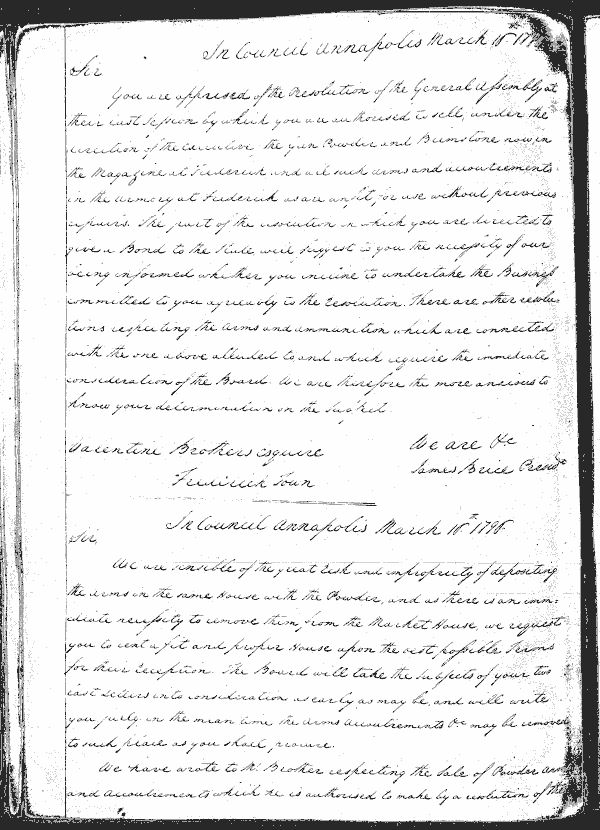 In Council Annapolis March 16th 179
Sir
You are apprised of the Resolution of the General Assembly at
their last Session by which you are authorised to sell, under the
direction of the Executive, the Gun Powder and Brimstone now in
the Magazine at Frederick and all such arms and accoutrements
in the Armory at Frederick as are unfit for use without previous
repairs. The part of the resolution in which you are directed to
give a Bond to the State will suggest to you the necessity of our
being informed whether you incline to undertake the Business
committed to you agreeably to the resolution. There are other resolu-
tions respecting the Arms and ammunition which are connected
with the one above alluded to and which require the immediate
consideration of the Board. We are therefore the more anxious to
know your determination on the Subject.
We are &c
Valentine Brothers esquire
James Brice Presidt
Frederick Town
In Council Annapolis March 16th 1796
Sir,
We are sensible of the great risk and impropriety of depositing
the arms in the same House with the Powder, and as there is an imme-
diate necessity to remove them from the Market House, we request
you to rent a fit and proper House upon the best possible terms
for their reception. The Board will take the Subjects of your two
last Letters into consideration as early as may be, and will write
you fully, in the mean time the Arms Accoutrements &c may be removed
to such place as you shall procure.
We have wrote to Mr. Brother respecting the Sale of Powder Arms
and Accoutrements which he is authorised to make by a resolution of the